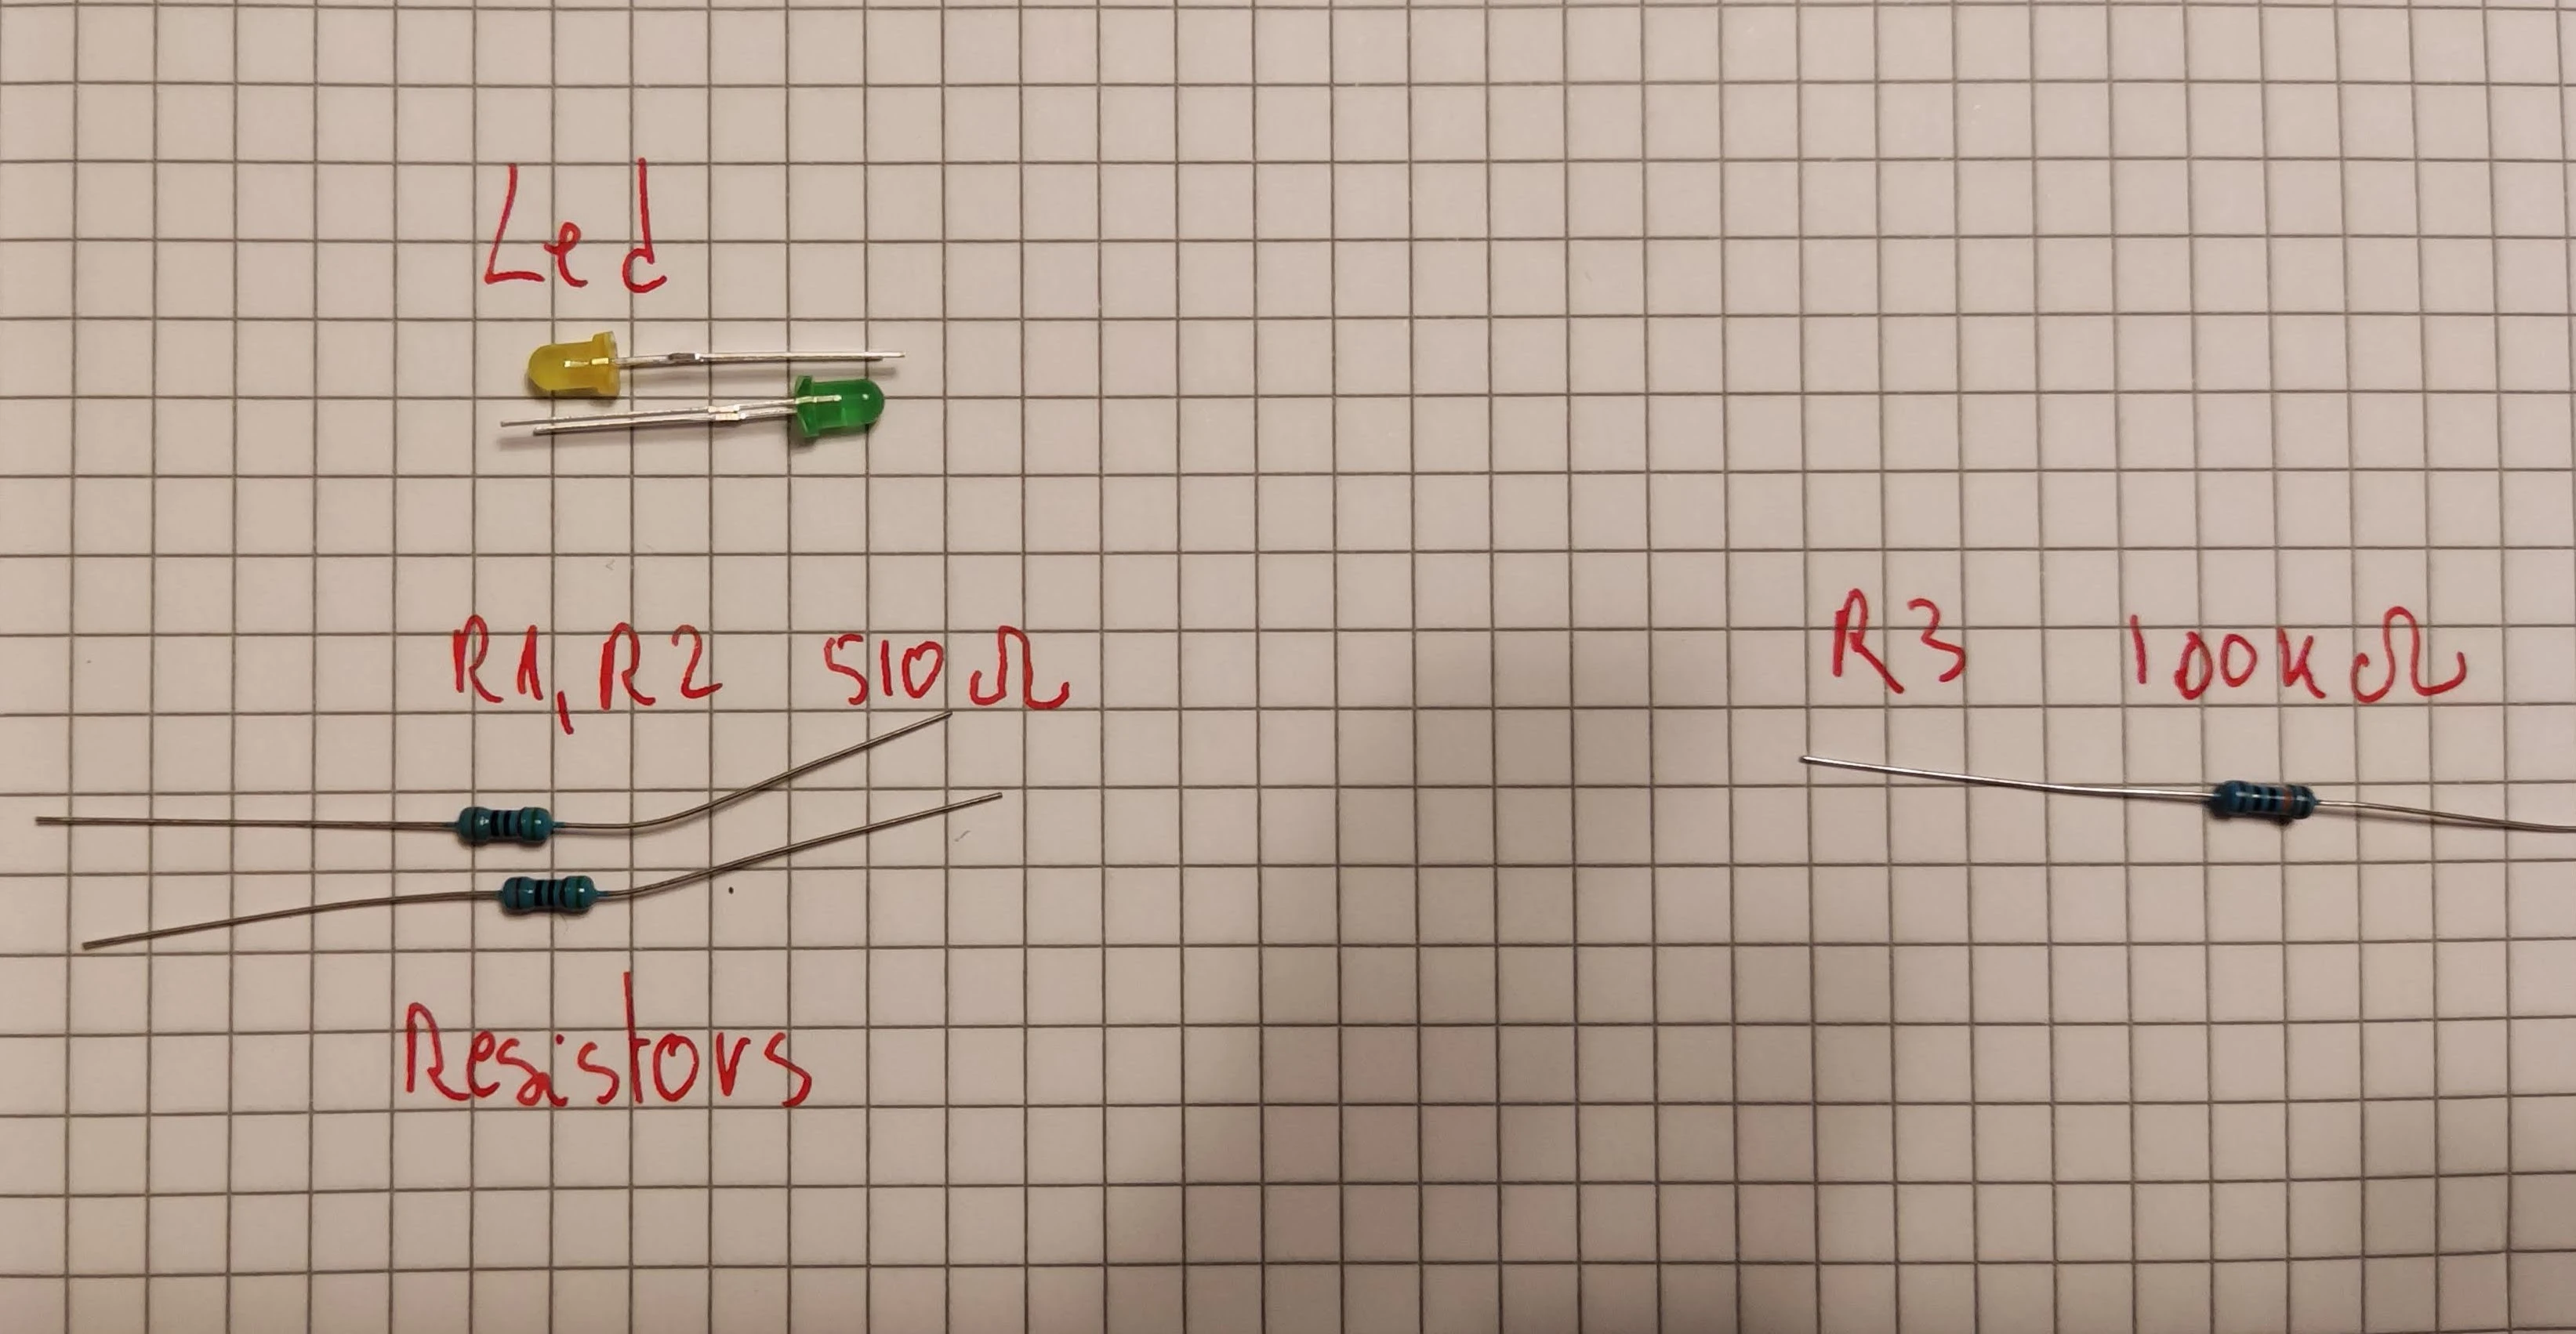 Led
R1, R2 510 Ω
R3 100K Ω
Resistors